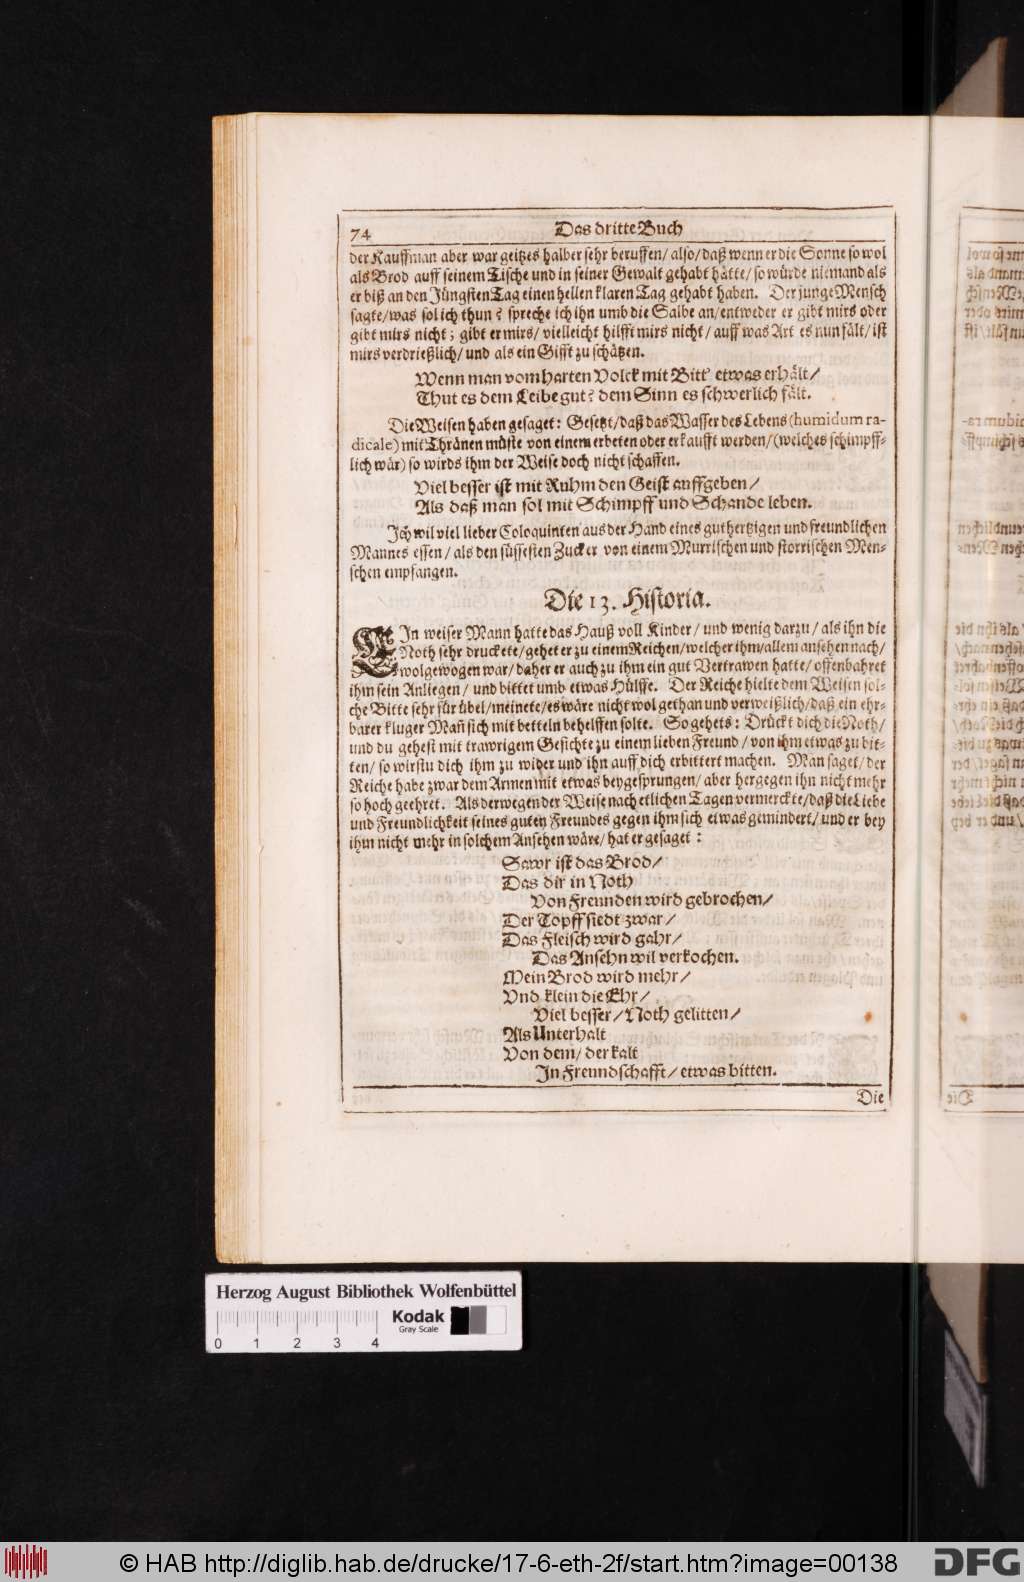 74 Das dritte Buch
der Kauffman aber war geitzes halber sehr beruffen/ also/ daß wenn er die Sonne so wol
als Brod auff seinem Tische und in seiner Gewalt gehabt hätte/ so würde niemand als
er biß an den Jüngsten Tag einen hellen klaren Tag gehabt haben. Der junge Mensch
sagte/ was sol ich thun? spreche ich ihn umb die Salbe an/ entweder er gibt mirs oder
gibt mirs nicht; gibt er mirs/ vielleicht hilfft mirs nicht/ auff was Art es nun fält/ ist
mirs verdrießlich/ und als ein Gifft zu schätzen.
Wenn man vom harten Volck mit Bitt' etwas erhält/
Thut es dem Leibe gut? dem Sinn es schwerlich fält.
Die Weisen haben gesaget: Gesetzt/ daß das Wasser des Lebens (humidum ra-
dicale) mit Thränen müste von einem erbeten oder erkaufft werden/ (welches schimpff-
lich wär) so wirds ihm der Weise doch nicht schaffen.
Viel besser ist mit Ruhm den Geist auffgeben/
Als daß man sol mit Schimpff und Schande leben.
Ich wil viel lieber Coloquinten aus der Hand eines guthertzigen und freundlichen
Mannes essen/ als den süssesten Zucker von einem Murrischen und storrischen Men-
schen empfangen.
Die 13. Historia.
EIn weiser Mann hatte das Hauß voll Kinder/ und wenig darzu/ als ihn die
Noth sehr druckete/ gehet er zu einem Reichen/ welcher ihm/ allem ansehen nach/
wolgewogen war/ daher er auch zu ihm ein gut Vertrawen hatte/ offenbahret
ihm sein Anliegen/ und bittet umb etwas Hülffe. Der Reiche hielte dem Weisen sol-
che Bitte sehr für übel/ meinete/ es wäre nicht wol gethan und verweißlich/ daß ein ehr-
barer kluger Mañ sich mit betteln behelffen solte. So gehets: Drückt dich die Noth/
und du gehest mit trawrigem Gesichte zu einem lieben Freund/ von ihm etwas zu bit-
ten/ so wirstu dich ihm zu wider und ihn auff dich erbittert machen. Man saget/ der
Reiche habe zwar dem Armen mit etwas beygesprungen/ aber hergegen ihn nicht mehr
so hoch geehret. Als derwegen der Weise nach etlichen Tagen vermerckte/ daß die Liebe
und Freundlichkeit seines guten Freundes gegen ihm sich etwas gemindert/ und er bey
ihm nicht mehr in solchem Ansehen wäre/ hat er gesaget:
Sawr ist das Brod/
Das dir in Noth
Von Freunden wird gebrochen/
Der Topff siedt zwar/
Das Fleisch wird gahr/
Das Ansehn wil verkochen.
Mein Brod wird mehr/
Vnd klein die Ehr/
Viel besser/ Noth gelitten/
Als Unterhalt
Von dem/ der kalt
In Freundschafft/ etwas bitten.
Die
Herzog August Bibliothek Wolfenbüttel
0 1 2 3 4
Kodak
Gray Scale
© HAB http://diglib.hab.de/drucke/17-6-eth-2f/start.htm?image=00138
DFG